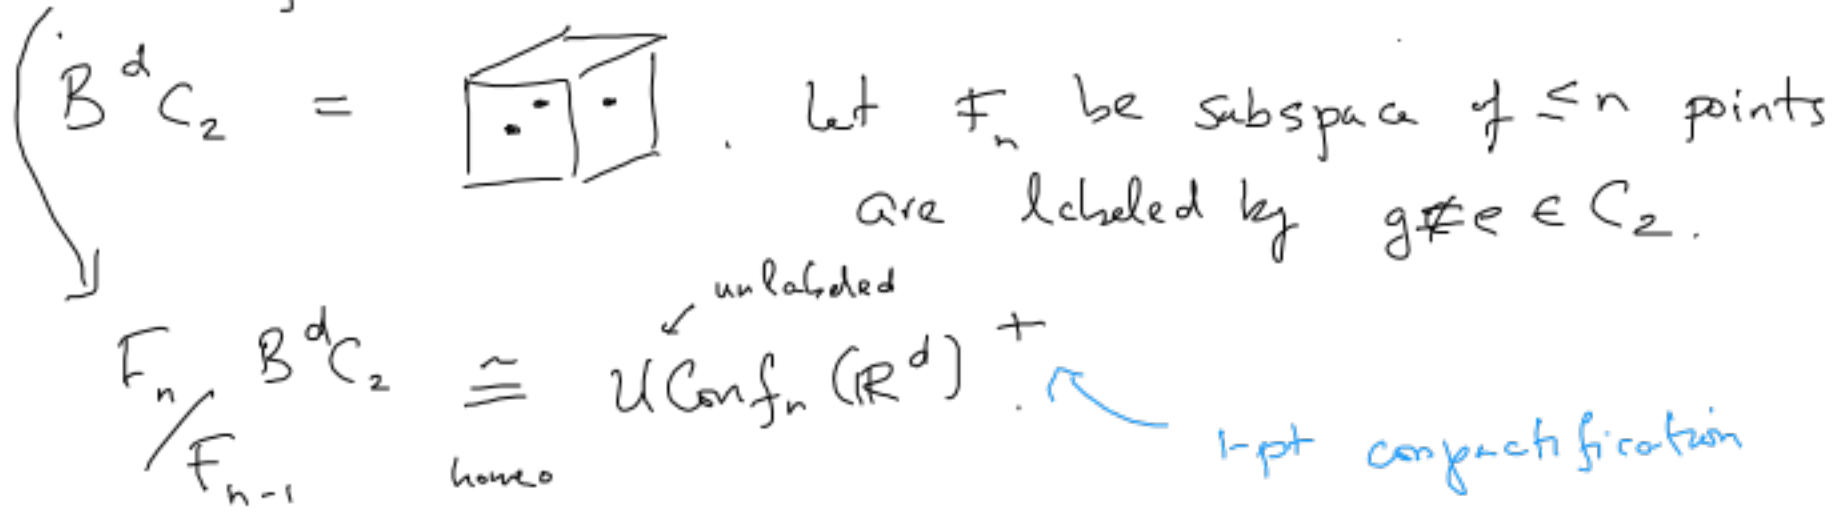 B^d C_2 = . Let F_n be subspace of ≤n points
are labeled by g≠e ∈ C_2.
unlabeled
F_n / F_{n-1} B^d C_2 ≅ UConf_n (ℝ^d)^+.
homeo
1-pt compactification